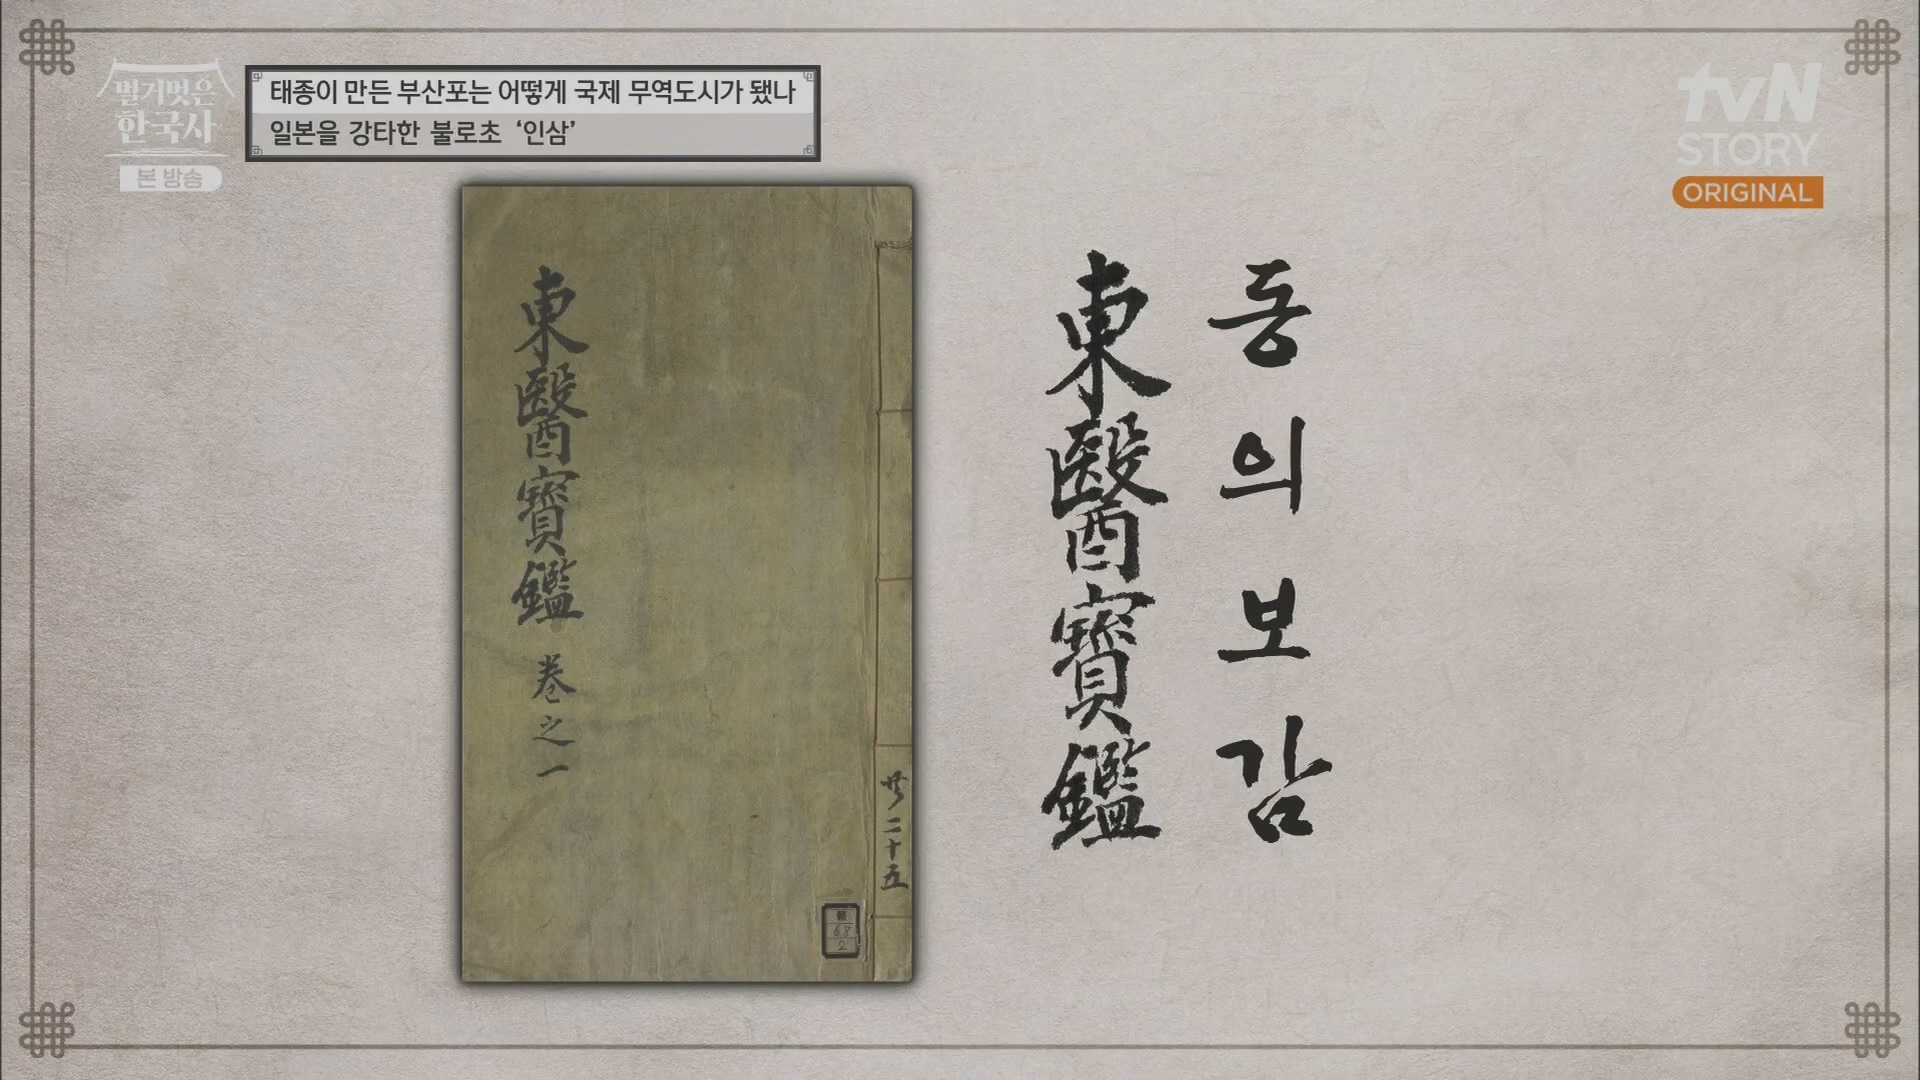 벌거벗은
한국사
본 방송
태종이 만든 부산포는 어떻게 국제 무역도시가 됐나
일본을 강타한 불로초 ‘인삼’
tvN
STORY
ORIGINAL
東醫寶鑑 卷之一
共二十五
68
2
東醫寶鑑
동의보감